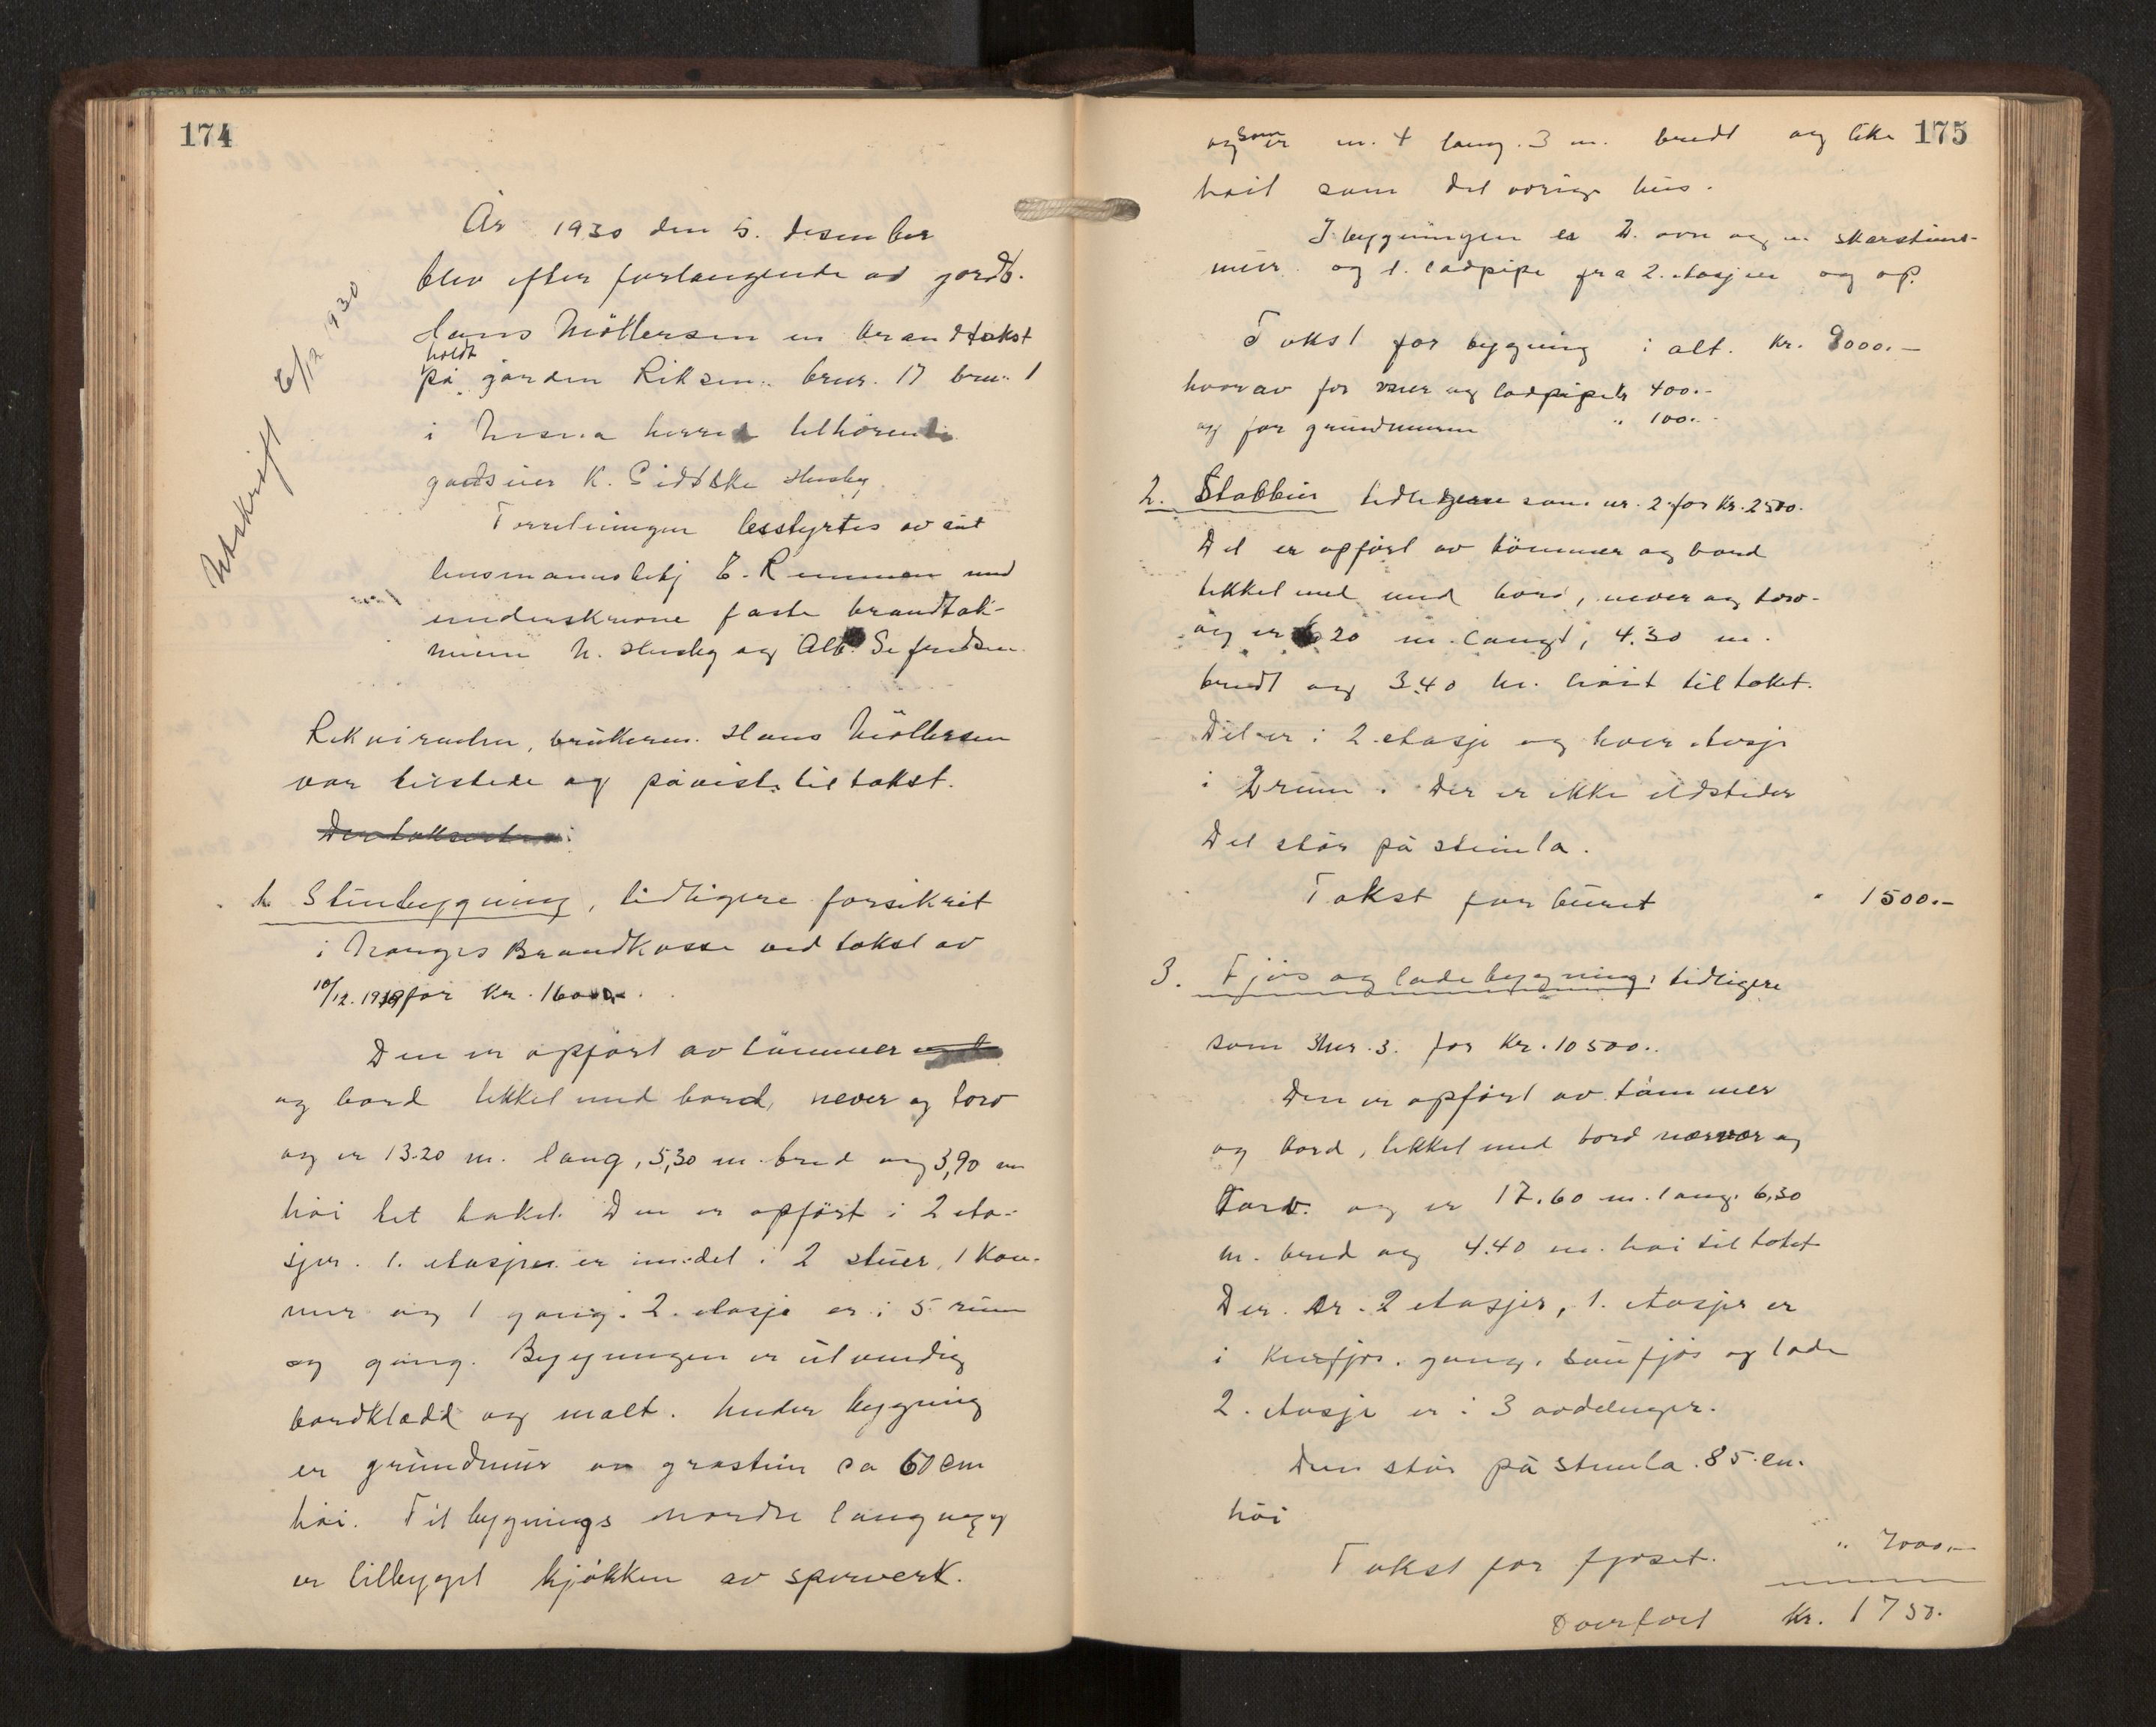 174
År 1930 den 5. desember
blev efter forlangende av gårdb.
Hans Möllersen en brandtakst
holdt
på gården Riksen. brnr. 17 brn. 1
i Nesna herred tilhørende
godseier K. Husby
Utskrift 6/12 1930
Forretningen bestyrtes av
lensmannsbetj E. Remmen med
underskrevne faste brandtak-
menn N. Husby og Alb.
Rekvirenten, brukeren. Hans Möllersen
var tilstede og påviste til takst.
Der takseertes:
1. Stuebygning, tidligere forsikret
i Norges Brandkasse ved takst av
10/12. 1919 for Kr. 16000.-
Den er opført av tömmer
og bord tekket med bord, never og torv
og er 13.20 m. lang, 5,30 m. bred og 3,90 m
höi til taket. Den er opfört i 2 eta-
sjer. 1. etasjen er inndel i 2 stuer, 1 kam-
mer og 1 gang. 2. etasje er i 5 rum
og gang. Bygningen er utvendig
bordklædd og malt. Under bygning
er grundmur av gråstein ca 60 cm
höi. Til bygnings nordre langvegg
er tilbygget kjøkken av sperverk.
175
som
og er m. 4 lang. 3 m. bredt og like
höit som det övrige hus.
I bygningen er 2. ovn og en skorstens-
mur. og 1. ladpipe fra 2. etasjen og op.
Takst for bygning i alt. Kr. 9000.-
hvorav for mur og ladpipe Kr 400.-
og for grundmuren " 100.-
2. Stabbur tidligere som nr. 2 for Kr. 2500.
Det er opført av tömmer og bord
tekket med med bord, never og torv-
og er 6 20 m. langt, 4.30 m.
bredt og 3.40 m. höit til taket.
Det er i 2 etasje og hver etasje
i 2 rum. Der er ikke ildsteder
Det står på steinla.
Takst for buret " 1500.-
3. Fjös og ladebygning, tidligere
som nr. 3. for Kr. 10500..
Den er opfört av tömmer
og bord, tekket med bord og
torv. og er 17.60 m. lang. 6,30
m. bred og 4.40 m. höi til taket
Der. er. 2 etasjer, 1. etasjer er
i kufjös, gang, saufjös og lade
2. etasje er i 3 avdelinger.
Den står på steinla 85 cm.
höi
Takst for fjöset. " 7000,-
Overfört Kr. 1750.